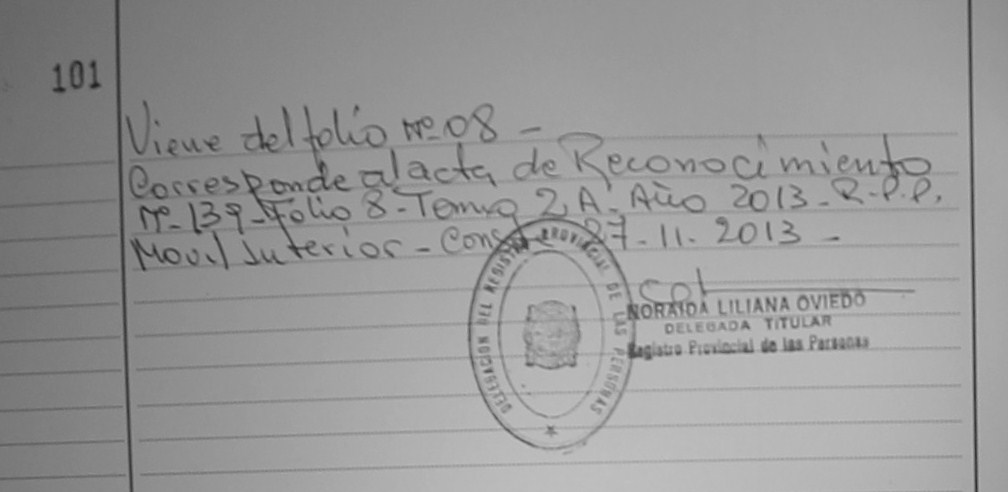 101
Viene del folio Nº 08 -
Corresponde al acta de Reconocimiento
Nº 139 - Folio 8 - Tomo 2 A - Año 2013 - R.P.P.
Movil Interior - Conste 27 - 11 - 2013 -
DELEGACION DEL REGISTRO PROVINCIAL DE LAS PERSONAS
NORAIDA LILIANA OVIEDO
DELEGADA TITULAR
Registro Provincial de las Personas